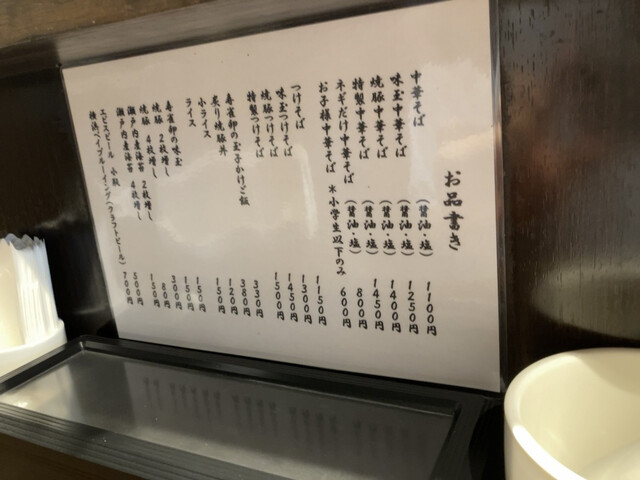 お品書き
中華そば (醤油・塩) 1100円
味玉中華そば (醤油・塩) 1250円
焼豚中華そば (醤油・塩) 1400円
特製中華そば (醤油・塩) 1450円
ネギだけ中華そば (醤油・塩) 800円
お子様中華そば ※小学生以下のみ 600円
つけそば 1150円
味玉つけそば 1300円
焼豚つけそば 1450円
特製つけそば 1500円
寿雀卵の玉子かけご飯 330円
炙り焼豚丼 380円
小ライス 120円
ライス 150円
寿雀卵の味玉 150円
焼豚 2枚増し 150円
焼豚 4枚増し 300円
瀬戸内産海苔 2枚増し 80円
瀬戸内産海苔 4枚増し 150円
ヱビスビール 小瓶 500円
横浜ベイブルーイング(クラフトビール) 700円